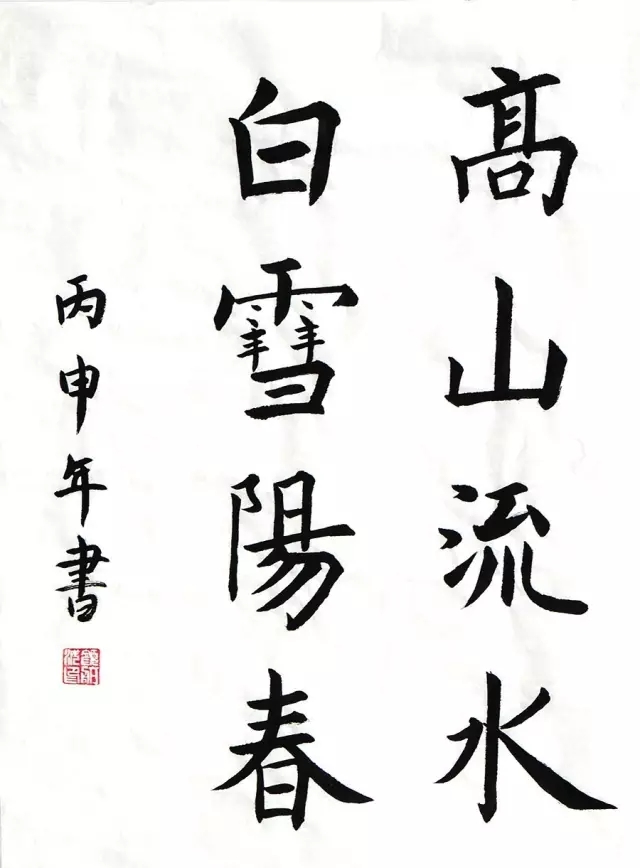 髙山流水
白雪陽春
丙申年書